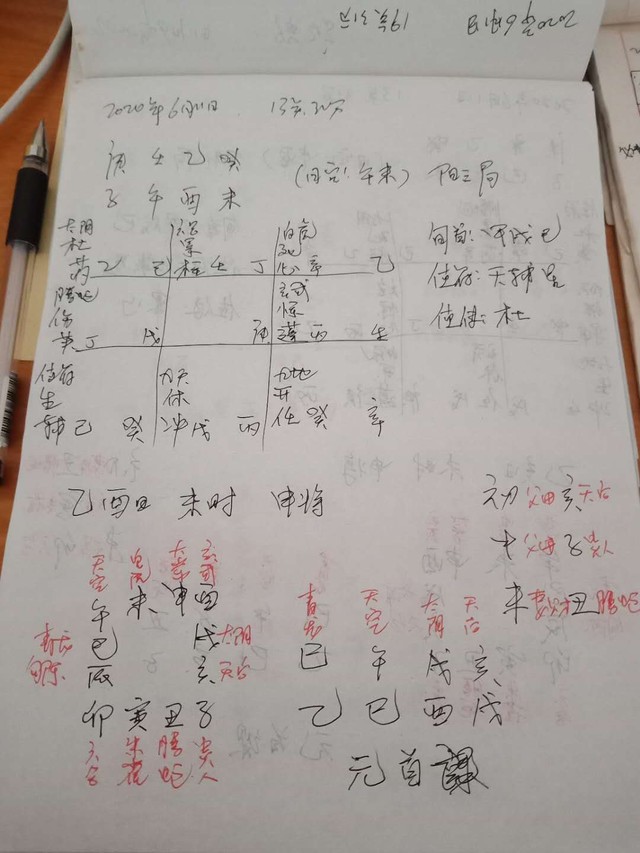 2020年6月11日 13点31分
庚 壬 乙 癸
子 午 酉 未
(旬空:午未) 阳三局
旬首:甲戌己
值符:天辅星
值使:杜
太阴 白虎
杜 景 死
芮 乙 己 柱 壬 丁 心 辛 乙
螣蛇 玄武
伤 惊
英 丁 戊 庚 蓬 丙 壬
值符 九天 九地
生 休 开
辅 己 癸 冲 戊 丙 任 癸 辛
乙酉日 未时 申将
初 父母 亥 天后
中 父母 子 贵人
末 妻财 丑 螣蛇
天空 白虎 太常 玄武
午 未 申 酉
青龙 巳 戌 太阴
勾陈 辰 亥 天后
卯 寅 丑 子
六合 朱雀 螣蛇 贵人
青龙 天空 太阴 天后
巳 午 戌 亥
乙 巳 酉 戌
元首課